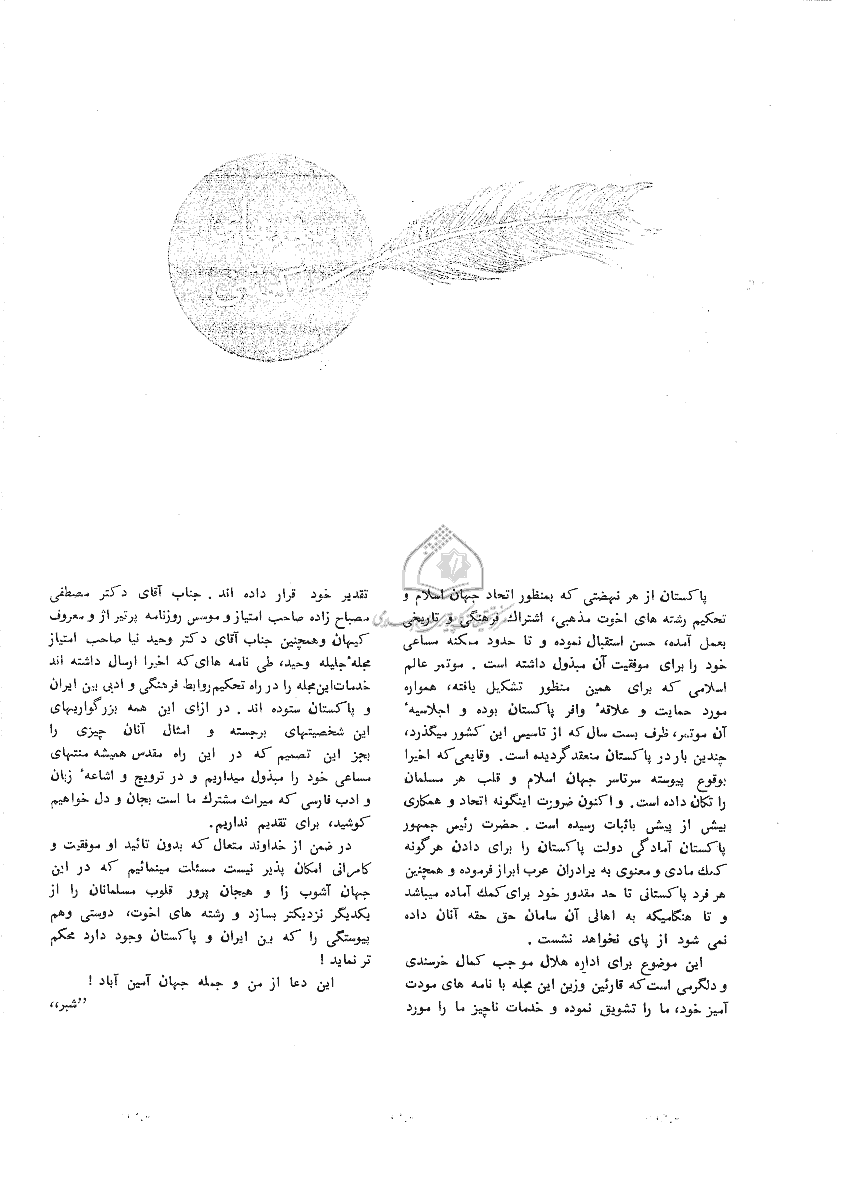 پاکستان از هر نهضتی که بمنظور اتحاد جهان اسلام و
تحکیم رشته های اخوت مذهبی، اشتراک فرهنگی و تاریخی
بعمل آمده، حسن استقبال نموده و تا حدود ممکنه مساعی
خود را برای موفقیت آن مبذول داشته است . موتمر عالم
اسلامی که برای همین منظور تشکیل یافته، همواره
مورد حمایت و علاقهٔ وافر پاکستان بوده و اجلاسیهٔ
آن موتمر، ظرف بست سال که از تاسیس این کشور میگذرد،
چندین بار در پاکستان منعقد گردیده است. وقایعی که اخیرا
بوقوع پیوسته سرتاسر جهان اسلام و قلب هر مسلمان
را تکان داده است. و اکنون ضرورت اینگونه اتحاد و همکاری
بیش از پیش باثبات رسیده است . حضرت رئیس جمهور
پاکستان آمادگی دولت پاکستان را برای دادن هرگونه
کمک مادی و معنوی به برادران عرب ابراز فرموده و همچنین
هر فرد پاکستانی تا حد مقدور خود برای کمک آماده میباشد
و تا هنگامیکه به اهالی آن سامان حق حقه آنان داده
نمی شود از پای نخواهد نشست .
این موضوع برای اداره هلال موجب کمال خرسندی
و دلگرمی است که قارئین وزین این مجله با نامه های مودت
آمیز خود، ما را تشویق نموده و خدمات ناچیز ما را مورد
تقدیر خود قرار داده اند . جناب آقای دکتر مصطفی
مصباح زاده صاحب امتیاز و موسس روزنامه پرتیراژ و معروف
کیهان وهمچنین جناب آقای دکتر وحید نیا صاحب امتیاز
مجلهٔ جلیله وحید، طی نامه هاای که اخیرا ارسال داشته اند
خدمات این مجله را در راه تحکیم روابط فرهنگی و ادبی بین ایران
و پاکستان ستوده اند . در ازای این همه بزرگواریهای
این شخصیتهای برجسته و امثال آنان چیزی را
بجز این تصمیم که در این راه مقدس همیشه منتهای
مساعی خود را مبذول میداریم و در ترویج و اشاعهٔ زبان
و ادب فارسی که میراث مشترک ما است بجان و دل خواهیم
کوشید، برای تقدیم نداریم.
در ضمن از خداوند متعال که بدون تائید او موفقیت و
کامرانی امکان پذیر نیست مسئلت مینمائیم که در این
جهان آشوب زا و هیجان پرور قلوب مسلمانان را از
یکدیگر نزدیکتر بسازد و رشته های اخوت، دوستی وهم
پیوستگی را که بین ایران و پاکستان وجود دارد محکم
تر نماید !
این دعا از من و جمله جهان آمین آباد !
”شبر،،